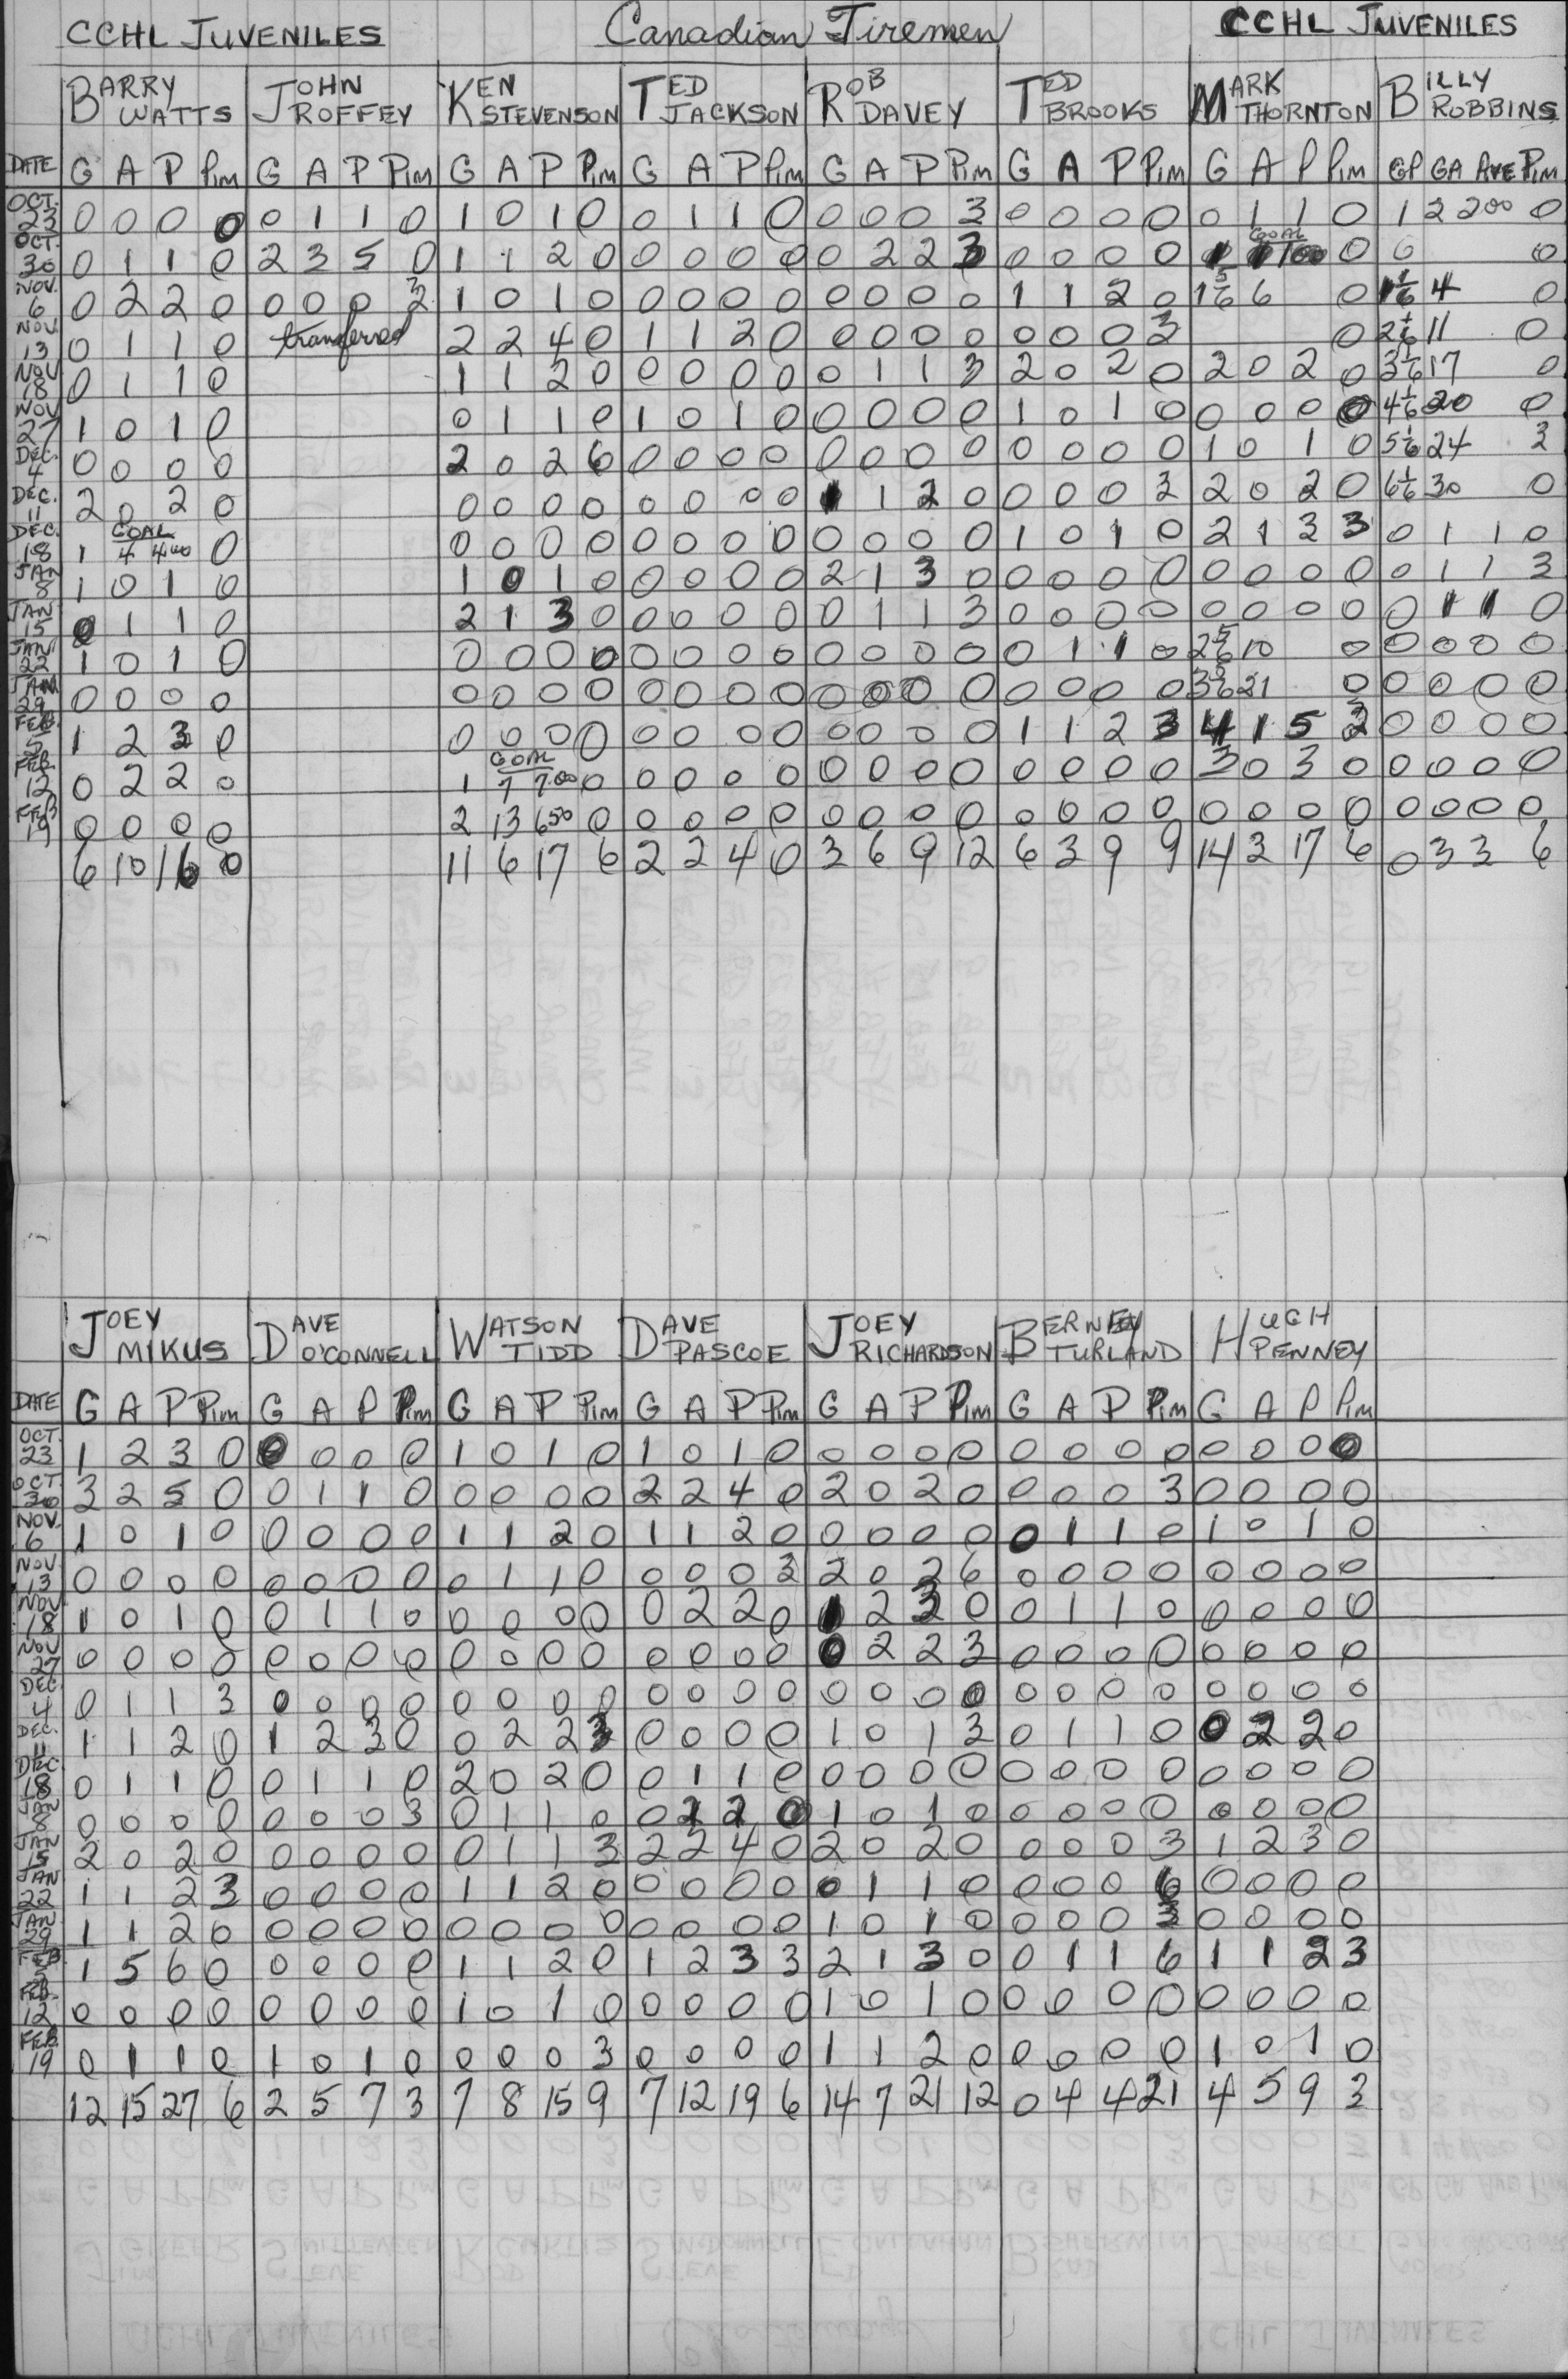 CCHL JUVENILES Canadian Tiremen CCHL JUVENILES
BARRY WATTS JOHN ROFFEY KEN STEVENSON TED JACKSON ROB DAVEY TED BROOKS MARK THORNTON BILLY ROBBINS
DATE G A P Pim G A P Pim G A P Pim G A P Pim G A P Pim G A P Pim G A P Pim GP GA AVE Pim
OCT. 23 0 0 0 0 0 1 1 0 1 0 1 0 0 1 1 0 0 0 0 3 0 0 0 0 0 1 1 0 1 2 2 00 0
OCT. 30 0 1 1 0 2 3 5 0 1 1 2 0 0 0 0 0 0 2 2 3 0 0 0 0 GOAL 1 1 100 0 0 0
NOV. 6 0 2 2 0 0 0 0 3 1 0 1 0 0 0 0 0 0 0 0 0 1 1 2 0 1 5/6 6 0 1 1/6 4 0
NOV. 13 0 1 1 0 transferred 2 2 4 0 1 1 2 0 0 0 0 0 0 0 0 3 0 2 1/6 11 0
NOV 18 0 1 1 0 1 1 2 0 0 0 0 0 0 1 1 3 2 0 2 0 2 0 2 0 3 1/6 17 0
NOV 27 1 0 1 0 0 1 1 0 1 0 1 0 0 0 0 0 1 0 1 0 0 0 0 0 4 1/6 20 0
DEC. 4 0 0 0 0 2 0 2 6 0 0 0 0 0 0 0 0 0 0 0 0 1 0 1 0 5 1/6 24 3
DEC. 11 2 0 2 0 0 0 0 0 0 0 0 0 1 1 2 0 0 0 0 3 2 0 2 0 6 1/6 30 0
DEC. 18 1 GOAL 4 400 0 0 0 0 0 0 0 0 0 0 0 0 0 1 0 1 0 2 1 3 3 0 1 1 0
JAN 8 1 0 1 0 1 0 1 0 0 0 0 0 2 1 3 0 0 0 0 0 0 0 0 0 0 1 1 3
JAN 15 0 1 1 0 2 1 3 0 0 0 0 0 0 1 1 3 0 0 0 0 0 0 0 0 0 1 1 0
JAN 22 1 0 1 0 0 0 0 0 0 0 0 0 0 0 0 0 0 1 1 0 2 5/6 10 0 0 0 0 0
JAN 29 0 0 0 0 0 0 0 0 0 0 0 0 0 0 0 0 0 0 0 0 3 5/6 21 0 0 0 0 0
FEB. 5 1 2 3 0 0 0 0 0 0 0 0 0 0 0 0 0 1 1 2 3 4 1 5 3 0 0 0 0
FEB. 12 0 2 2 0 1 GOAL 7 700 0 0 0 0 0 0 0 0 0 0 0 0 0 3 0 3 0 0 0 0 0
FEB 19 0 0 0 0 2 13 650 0 0 0 0 0 0 0 0 0 0 0 0 0 0 0 0 0 0 0 0 0
6 10 16 0 11 6 17 6 2 2 4 0 3 6 9 12 6 3 9 9 14 3 17 6 0 3 3 6
JOEY MIKUS DAVE O'CONNELL WATSON TIDD DAVE PASCOE JOEY RICHARDSON BERNEY TURLAND HUGH PENNEY
DATE G A P Pim G A P Pim G A P Pim G A P Pim G A P Pim G A P Pim G A P Pim
OCT. 23 1 2 3 0 0 0 0 0 1 0 1 0 1 0 1 0 0 0 0 0 0 0 0 0 0 0 0 0
OCT. 30 3 2 5 0 0 1 1 0 0 0 0 0 2 2 4 0 2 0 2 0 0 0 0 3 0 0 0 0
NOV. 6 1 0 1 0 0 0 0 0 1 1 2 0 1 1 2 0 0 0 0 0 0 1 1 0 1 0 1 0
NOV 13 0 0 0 0 0 0 0 0 0 1 1 0 0 0 0 3 2 0 2 6 0 0 0 0 0 0 0 0
NOV 18 1 0 1 0 0 1 1 0 0 0 0 0 0 2 2 0 1 2 3 0 0 1 1 0 0 0 0 0
NOV 27 0 0 0 0 0 0 0 0 0 0 0 0 0 0 0 0 0 2 2 3 0 0 0 0 0 0 0 0
DEC. 4 0 1 1 3 0 0 0 0 0 0 0 0 0 0 0 0 0 0 0 0 0 0 0 0 0 0 0 0
DEC. 11 1 1 2 0 1 2 3 0 0 2 2 3 0 0 0 0 1 0 1 3 0 1 1 0 0 2 2 0
DEC 18 0 1 1 0 0 1 1 0 2 0 2 0 0 1 1 0 0 0 0 0 0 0 0 0 0 0 0 0
JAN 8 0 0 0 0 0 0 0 3 0 1 1 0 0 2 2 0 1 0 1 0 0 0 0 0 0 0 0 0
JAN 15 2 0 2 0 0 0 0 0 0 1 1 3 2 2 4 0 2 0 2 0 0 0 0 3 1 2 3 0
JAN 22 1 1 2 3 0 0 0 0 1 1 2 0 0 0 0 0 0 1 1 0 0 0 0 6 0 0 0 0
JAN 29 1 1 2 0 0 0 0 0 0 0 0 0 0 0 0 0 1 0 1 0 0 0 0 3 0 0 0 0
FEB 5 1 5 6 0 0 0 0 0 1 1 2 0 1 2 3 3 2 1 3 0 0 1 1 6 1 1 2 3
FEB. 12 0 0 0 0 0 0 0 0 1 0 1 0 0 0 0 0 1 0 1 0 0 0 0 0 0 0 0 0
FEB. 19 0 1 1 0 1 0 1 0 0 0 0 3 0 0 0 0 1 1 2 0 0 0 0 0 1 0 1 0
12 15 27 6 2 5 7 3 7 8 15 9 7 12 19 6 14 7 21 12 0 4 4 21 4 5 9 3